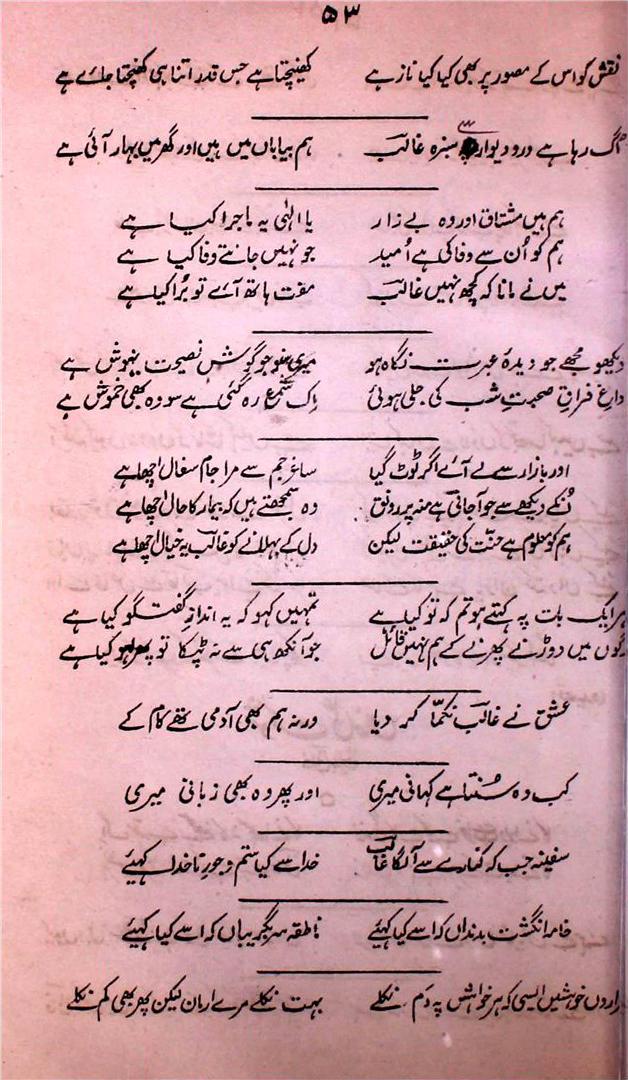 ۵۳
نقش کو اس کے مصور پر بھی کیا کیا ناز ہے کھینچتا ہے جس قدر اتنا ہی کھنچتا جائے ہے
اُگ رہا ہے در و دیوار سے سبزہ غالبؔ ہم بیاباں میں ہیں اور گھر میں بہار آئی ہے
ہم ہیں مشتاق اور وہ بے زار یا الٰہی یہ ماجرا کیا ہے
ہم کو اُن سے وفا کی ہے اُمید جو نہیں جانتے وفا کیا ہے
میں نے مانا کہ کچھ نہیں غالبؔ مفت ہاتھ آئے تو بُرا کیا ہے
دیکھو مجھے جو دیدۂ عبرت نگاہ ہو میری سنو جو گوش نصیحت نیوش ہے
داغِ فراقِ صحبتِ شب کی جلی ہوئی اِک شمع رہ گئی ہے سو وہ بھی خموش ہے
اور بازار سے لے آئے اگر ٹوٹ گیا ساغرِ جم سے مرا جامِ سفال اچھا ہے
اُنکے دیکھے سے جو آجاتی ہے منہ پر رونق وہ سمجھتے ہیں کہ بیمار کا حال اچھا ہے
ہم کو معلوم ہے جنّت کی حقیقت لیکن دل کے بہلانے کو غالبؔ یہ خیال اچھا ہے
ہر ایک بات پہ کہتے ہو تم کہ تو کیا ہے تمہیں کہو کہ یہ اندازِ گفتگو کیا ہے
رگوں میں دوڑنے پھرنے کے ہم نہیں قائل جو آنکھ ہی سے نہ ٹپکا تو پھر لہو کیا ہے
عشق نے غالبؔ نکمّا کر دیا ورنہ ہم بھی آدمی تھے کام کے
کب وہ سُنتا ہے کہانی میری اور پھر وہ بھی زبانی میری
سفینہ جب کہ کنارے سے آلگا غالبؔ خدا سے کیا ستم و جورِ ناخدا کہیئے
خامہ انگشت بدنداں کہ اسے کیا کہیئے ناطقہ سر بگریباں کہ اسے کیا کہیئے
ہزاروں خواہشیں ایسی کہ ہر خواہش پہ دَم نکلے بہت نکلے مرے ارمان لیکن پھر بھی کم نکلے